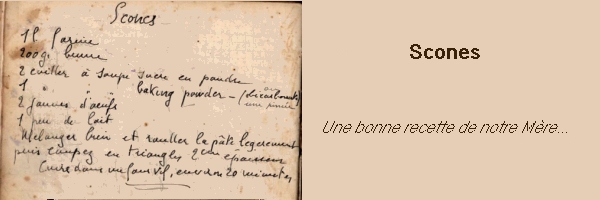 Scones
1 l farine
200g. beurre
2 cuiller à soupe sucre en poudre
1 " " baking powder - (bicarbonate
une pincée
2 jaunes d'œufs
1 peu de lait
Mélanger bien et rouller la pâte légèrement
puis coupez en triangles 2 cm épaisseur
Cuire dans un four vif, environ 20 minutes
Scones
Une bonne recette de notre Mère...